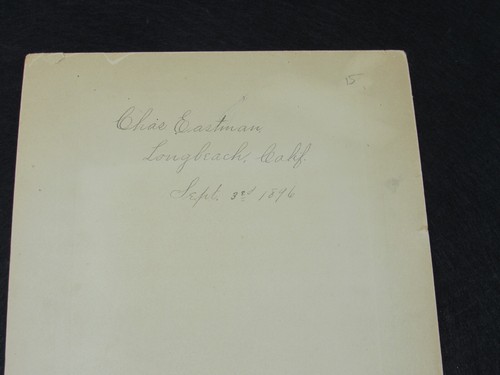 5
Chas Eastman
Longbeach, Calif.
Sept. 3rd 1896